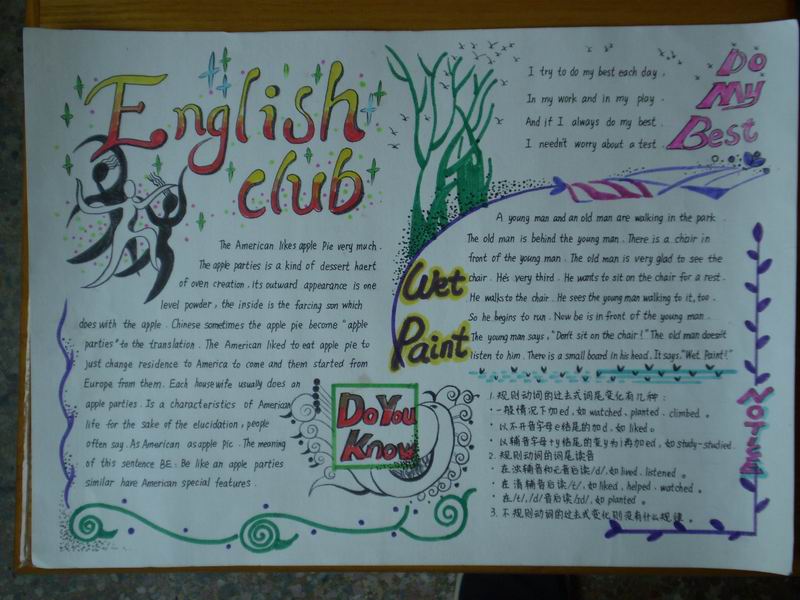 English
club
The American likes apple Pie very much.
The apple parties is a kind of dessert haert
of oven creation, its outward appearance is one
level powder, the inside is the farcing son which
does with the apple. Chinese sometimes the apple pie become "apple
parties" to the translation. The American liked to eat apple pie to
just change residence to America to come and them started from
Europe from them. Each housewife usually does an
apple parties. Is a characteristics of American
life for the sake of the elucidation, people
often say. As American as apple pic. The meaning
of this sentence BE: Be like an apple parties
similar hare American special features.
Do You
Know
Do
My
Best
I try to do my best each day.
In my work and in my play.
And if I always do my best.
I needn't worry about a test.
Wet
Paint
A young man and an old man are walking in the park.
The old man is behind the young man. There is a chair in
front of the young man. The old man is very glad to see the
chair. He's very third. He wants to sit on the chair for a rest.
He walks to the chair. He sees the young man walking to it, too.
So he begins to run. Now be is in front of the young man.
The young man says, "Don't sit on the chair!" The old man doesn't
listen to him. There is a small board in his head. It says, "Wet Paint!"
1. 规则动词的过去式词尾变化有几种:
· 一般情况下加ed, 如 watched、planted、climbed。
· 以不开音字母e结尾的加d, 如 liked。
· 以辅音字母+y结尾的变y为i再加ed, 如 study-studied.
2. 规则动词的词尾读音
· 在浊辅音和元音后读/d/, 如 lived、listened。
· 在清辅音后读/t/, 如 liked、helped、watched。
· 在/t/,/d/音后读/ɪd/, 如 planted。
3. 不规则动词的过去式变化则没有什么规律。